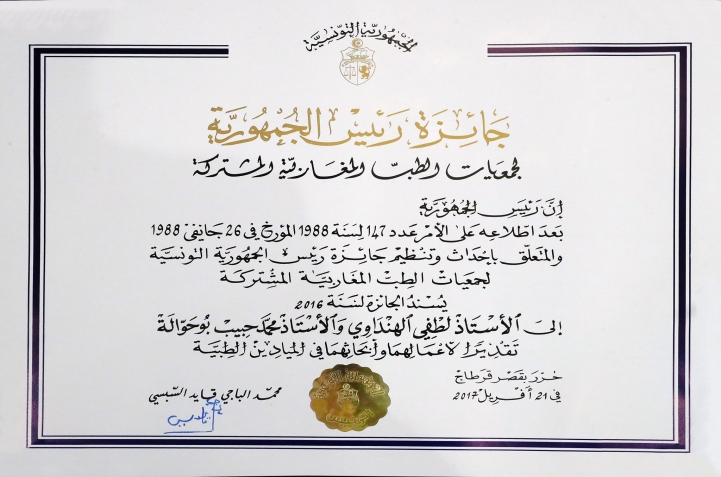 الجمهورية التونسية
جائزة رئيس الجمهورية
لجمعيات الطب المغاربية المشتركة
إن رئيس الجمهورية
بعد اطلاعه على الأمر عدد 147 لسنة 1988 المؤرخ في 26 جانفي 1988
والمتعلق بإحداث وتنظيم جائزة رئيس الجمهورية التونسية
لجمعيات الطب المغاربية المشتركة
يسند الجائزة لسنة 2016
إلى الأستاذ لطفي الهنداوي والأستاذ محمد حبيب بوحوالة
تقديرا لأعمالهما وأبحاثهما في الميادين الطبية
حرر بقصر قرطاج
في 21 أفريل 2017
محمد الباجي قايد السبسي